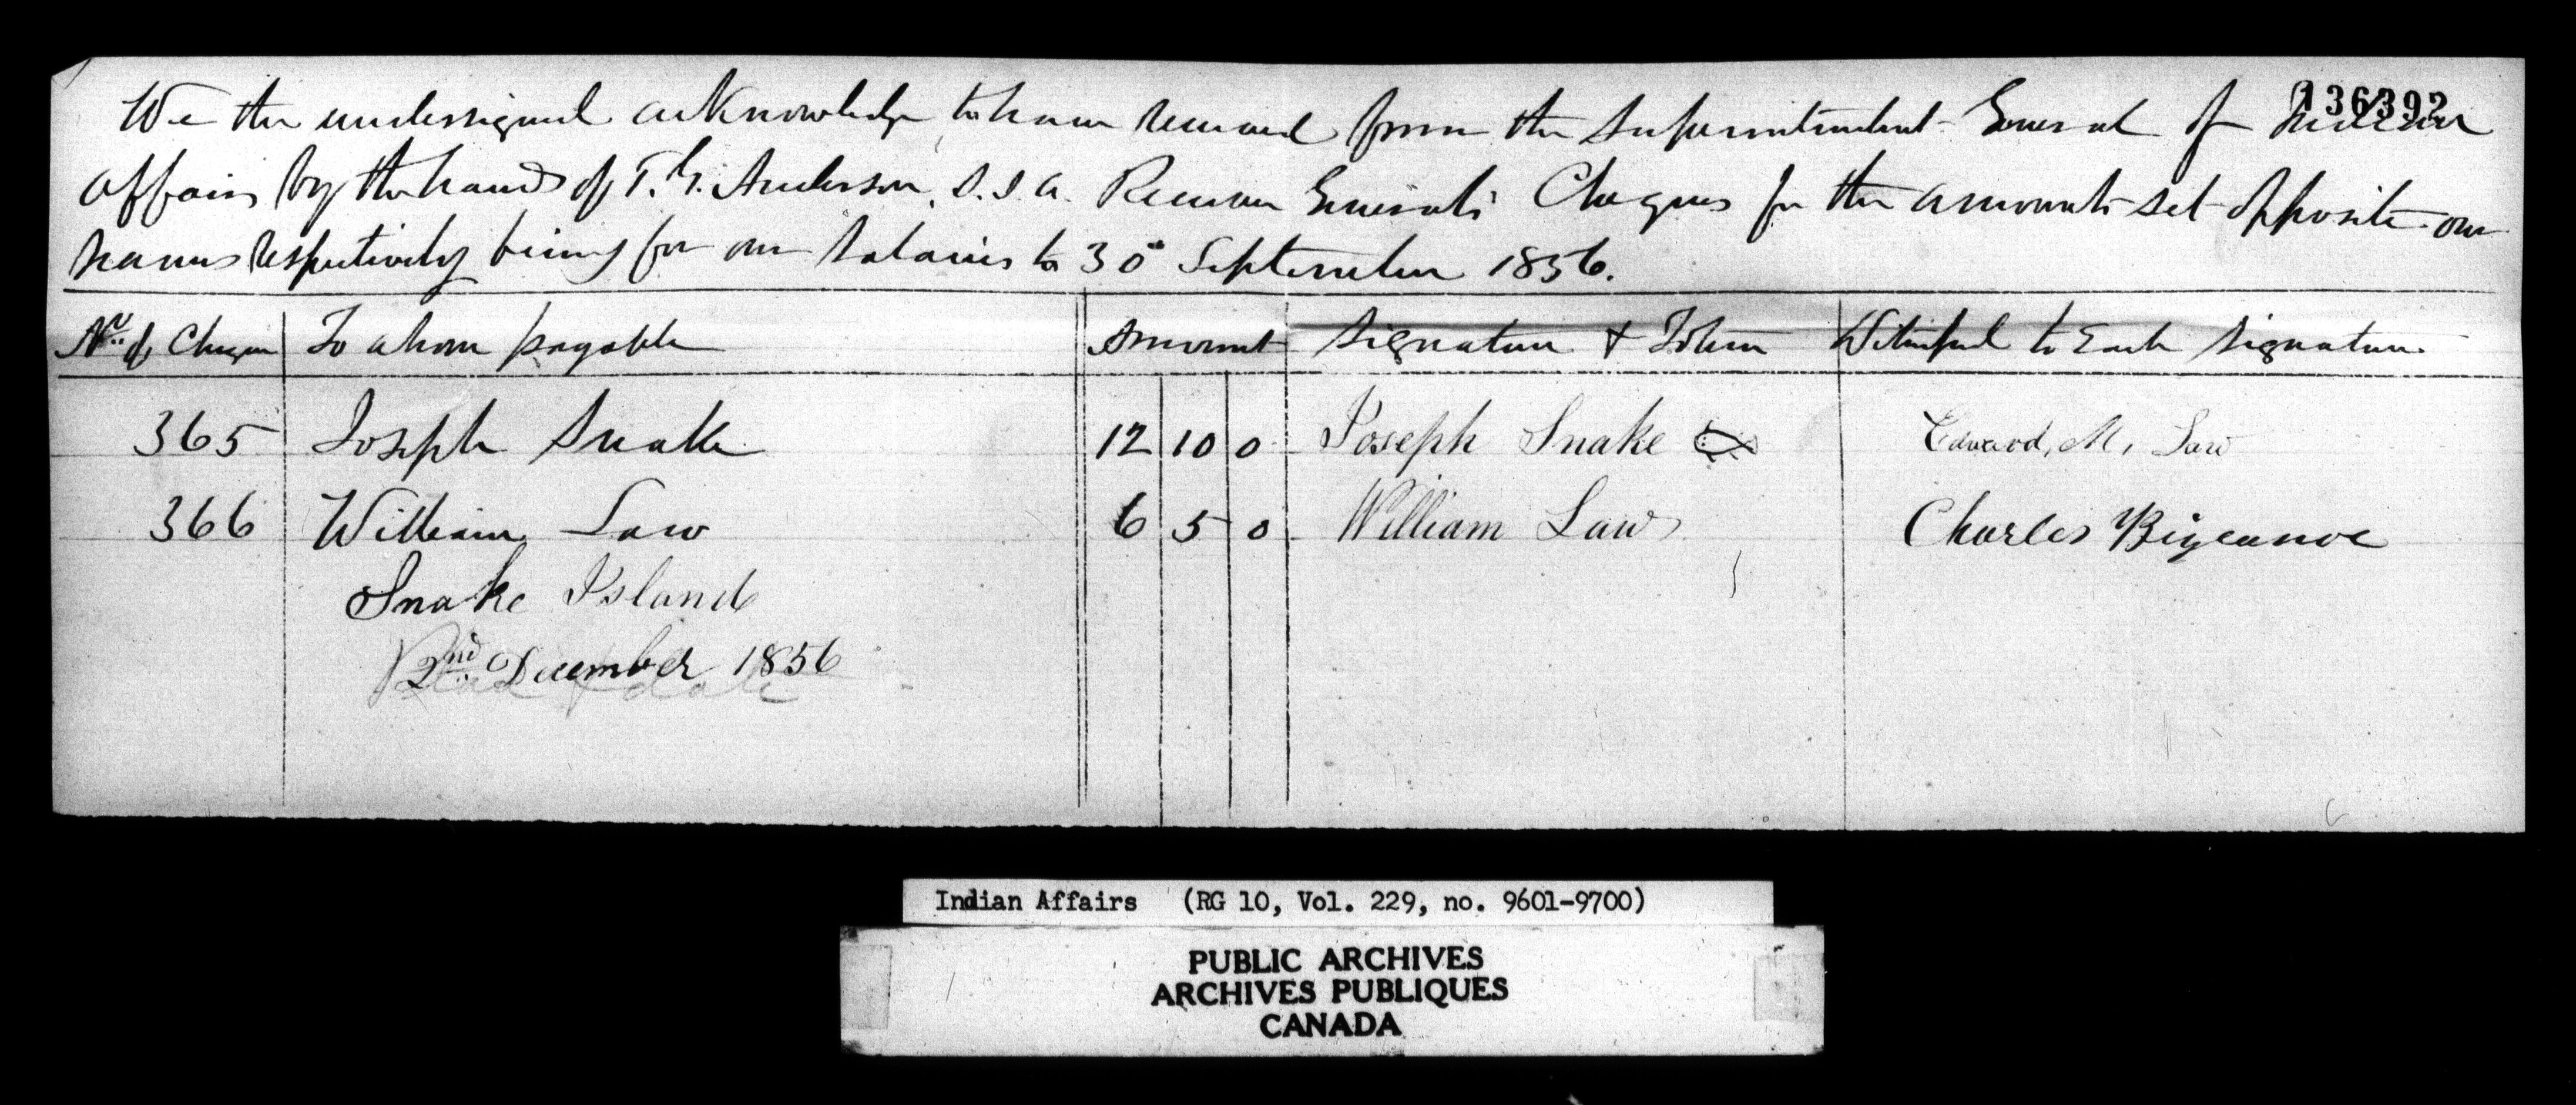 136392
We the undersigned acknowledge to have received from the Superintendent General of Indian
Affairs by the hands of T. G. Anderson, S.I.A. Receiver General's Cheques for the amounts set opposite our
names respectively being for our Salaries to 30 September 1856.
No. of Cheque To whom payable Amount Signature & Totem Witnessed to Each Signature
365 Joseph Snake 12 10 0 Joseph Snake Edward, M, Law
366 William Law 6 5 0 William Law Charles Bigcanoe
Snake Island
2nd December 1856
Indian Affairs (RG 10, Vol. 229, no. 9601-9700)
PUBLIC ARCHIVES
ARCHIVES PUBLIQUES
CANADA